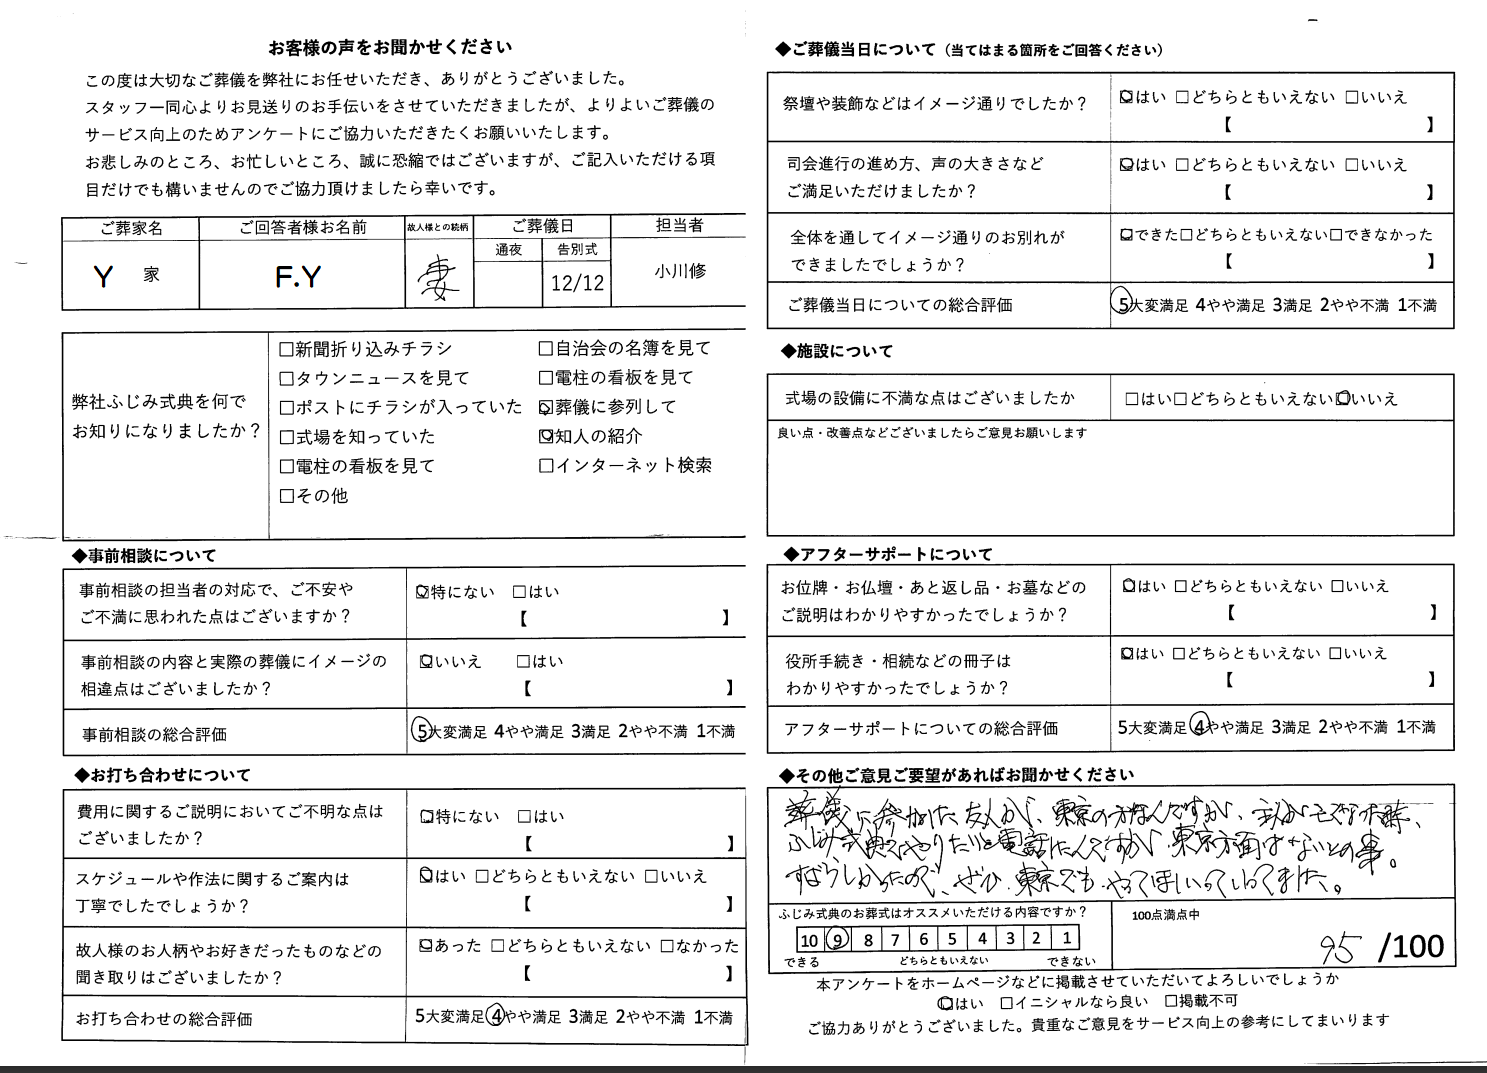 お客様の声をお聞かせください
この度は大切なご葬儀を弊社にお任せいただき、ありがとうございました。
スタッフ一同心よりお見送りのお手伝いをさせていただきましたが、よりよいご葬儀の
サービス向上のためアンケートにご協力いただきたくお願いいたします。
お悲しみのところ、お忙しいところ、誠に恐縮ではございますが、ご記入いただける項
目だけでも構いませんのでご協力頂けましたら幸いです。
ご葬家名 ご回答者様お名前 故人様との続柄 ご葬儀日 担当者
通夜 告別式
Y 家 F.Y 妻 12/12 小川修
弊社ふじみ式典を何で
お知りになりましたか？
□新聞折り込みチラシ □自治会の名簿を見て
□タウンニュースを見て □電柱の看板を見て
□ポストにチラシが入っていた □葬儀に参列して
□式場を知っていた □知人の紹介
□電柱の看板を見て □インターネット検索
□その他
◆事前相談について
事前相談の担当者の対応で、ご不安や
ご不満に思われた点はございますか？
□特にない □はい
【 】
事前相談の内容と実際の葬儀にイメージの
相違点はございましたか？
□いいえ □はい
【 】
事前相談の総合評価 5大変満足 4やや満足 3満足 2やや不満 1不満
◆お打ち合わせについて
費用に関するご説明においてご不明な点は
ございましたか？
□特にない □はい
【 】
スケジュールや作法に関するご案内は
丁寧でしたでしょうか？
□はい □どちらともいえない □いいえ
【 】
故人様のお人柄やお好きだったものなどの
聞き取りはございましたか？
□あった □どちらともいえない □なかった
【 】
お打ち合わせの総合評価 5大変満足 4やや満足 3満足 2やや不満 1不満
◆ご葬儀当日について（当てはまる箇所をご回答ください）
祭壇や装飾などはイメージ通りでしたか？ □はい □どちらともいえない □いいえ
【 】
司会進行の進め方、声の大きさなど
ご満足いただけましたか？
□はい □どちらともいえない □いいえ
【 】
全体を通してイメージ通りのお別れが
できましたでしょうか？
□できた□どちらともいえない□できなかった
【 】
ご葬儀当日についての総合評価 5大変満足 4やや満足 3満足 2やや不満 1不満
◆施設について
式場の設備に不満な点はございましたか □はい□どちらともいえない□いいえ
良い点・改善点などございましたらご意見お願いします
◆アフターサポートについて
お位牌・お仏壇・あと返し品・お墓などの
ご説明はわかりやすかったでしょうか？
□はい □どちらともいえない □いいえ
【 】
役所手続き・相続などの冊子は
わかりやすかったでしょうか？
□はい □どちらともいえない □いいえ
【 】
アフターサポートについての総合評価 5大変満足 4やや満足 3満足 2やや不満 1不満
◆その他ご意見ご要望があればお聞かせください
葬儀に参加した友人が、東京の方なんですが、
ふじみ式典でやりたいと電話したんですが 東京方面はないとの事。
すばらしかったので、ぜひ、東京でも やってほしいっていってました。
ふじみ式典のお葬式はオススメいただける内容ですか？ 100点満点中
10 9 8 7 6 5 4 3 2 1
できる どちらともいえない できない
95 /100
本アンケートをホームページなどに掲載させていただいてよろしいでしょうか
□はい □イニシャルなら良い □掲載不可
ご協力ありがとうございました。貴重なご意見をサービス向上の参考にしてまいります